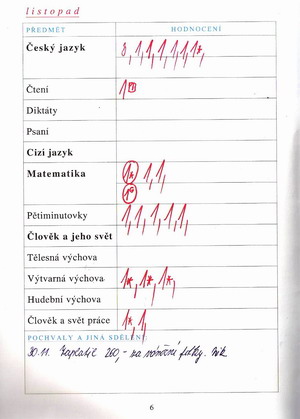 listopad
PŘEDMĚT HODNOCENÍ
Český jazyk 1, 1, 1, 1, 1, 1*,
Čtení 1
Diktáty
Psaní
Cizí jazyk
Matematika 1* 1, 1,
1
Pětiminutovky 1, 1, 1, 1, 1,
Člověk a jeho svět
Tělesná výchova
Výtvarná výchova 1*, 1*, 1*,
Hudební výchova
Člověk a svět práce 1*, 1,
POCHVALY A JINÁ SDĚLENÍ
30.11. Zaplatit 260,- za vánoční fotky.
6